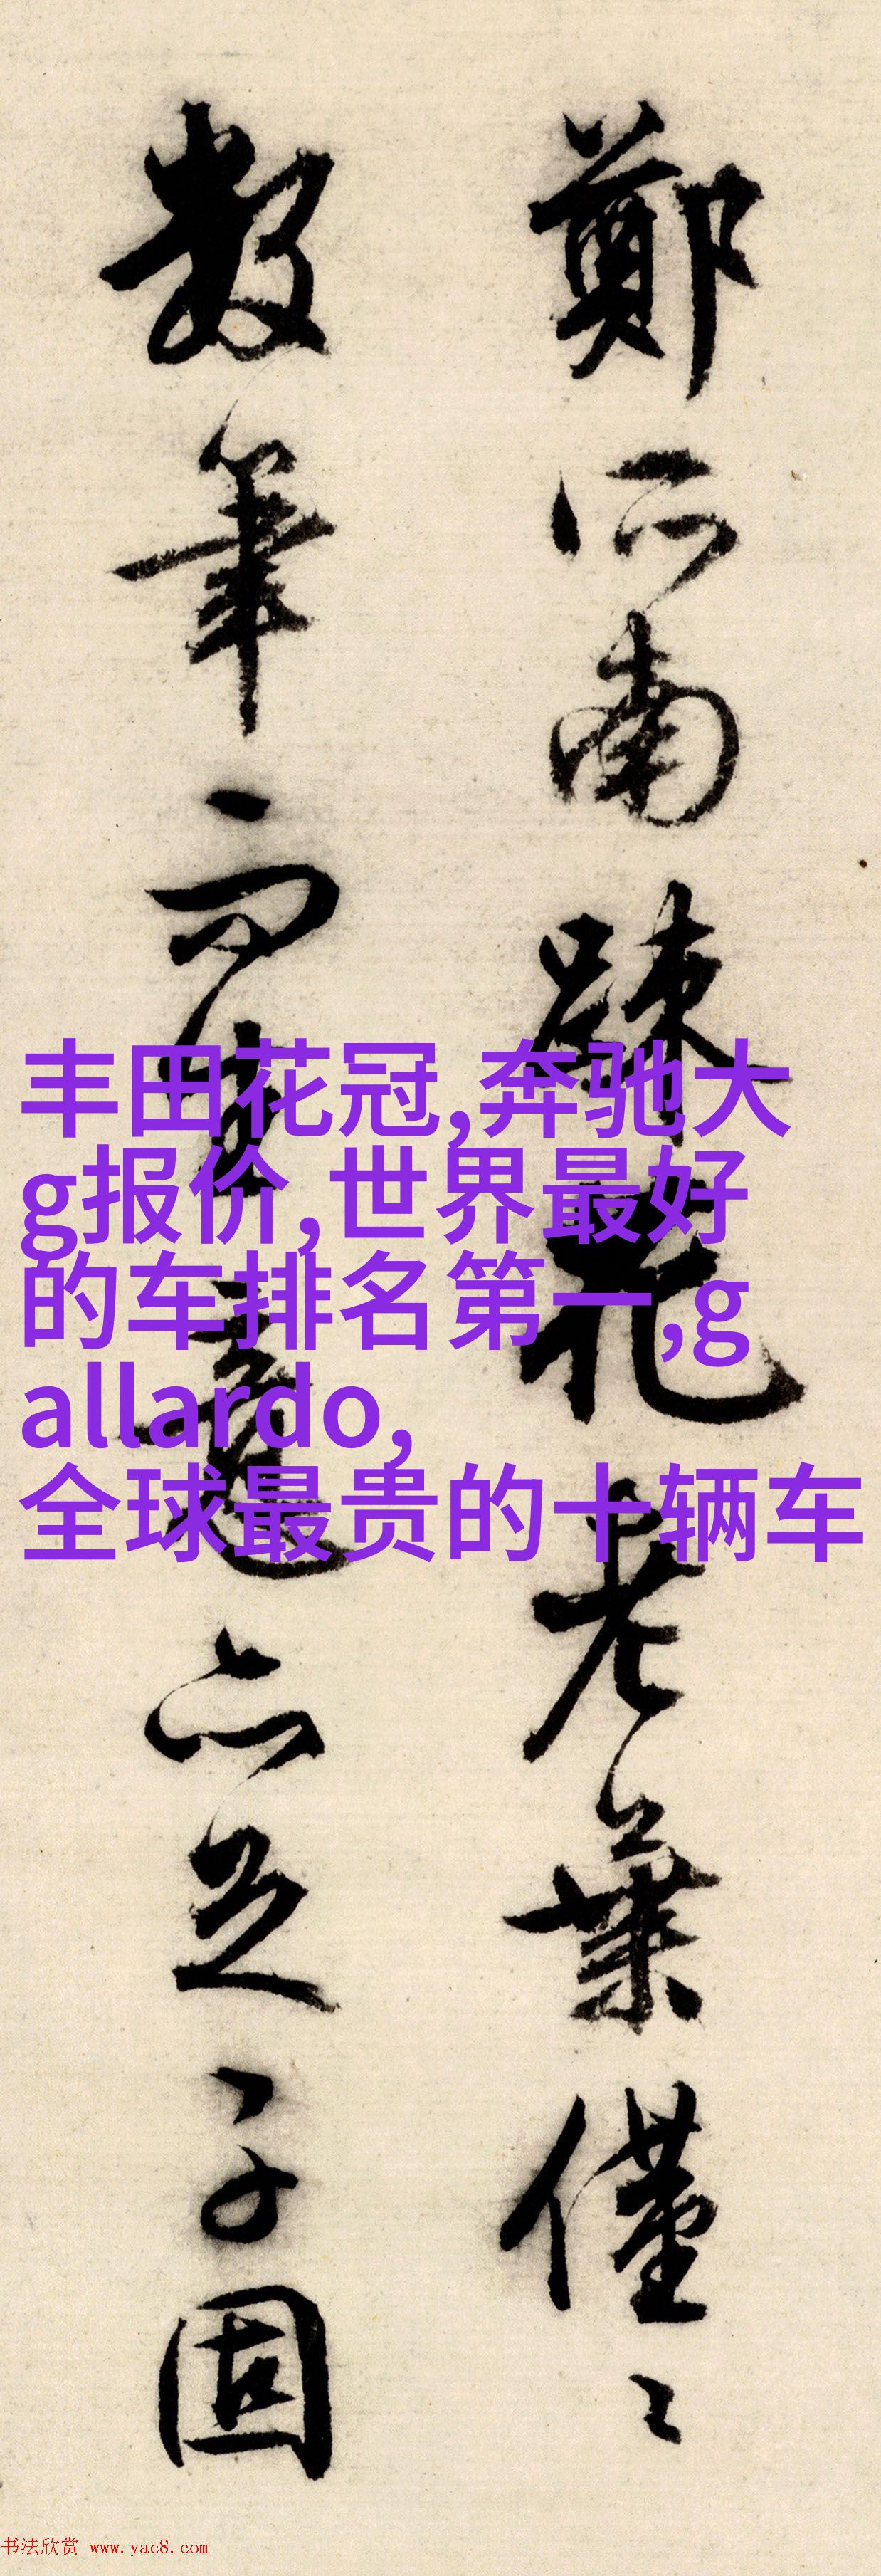 鄭所南踈花老葉僅〻
數筆而生意亦足予固
丰田花冠,奔驰大
g报价,世界最好
的车排名第一,g
allardo,
全球最贵的十辆车
书法欣赏 www.yac8.com